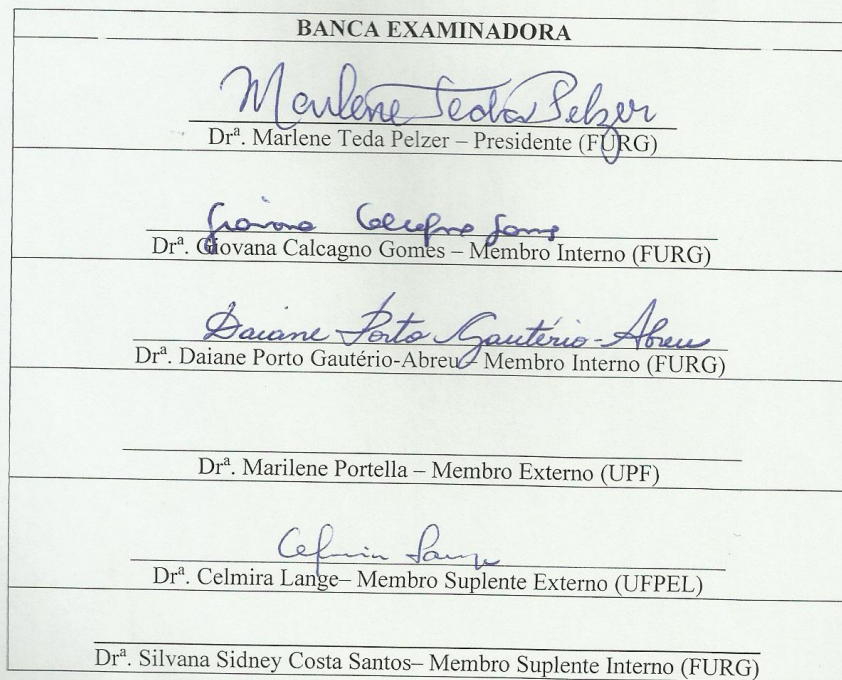 BANCA EXAMINADORA
Marlene Teda Pelzer
Drª. Marlene Teda Pelzer – Presidente (FURG)
Giovana Calcagno Gomes
Drª. Giovana Calcagno Gomes – Membro Interno (FURG)
Daiane Porto Gautério-Abreu
Drª. Daiane Porto Gautério-Abreu – Membro Interno (FURG)
Drª. Marilene Portella – Membro Externo (UPF)
Drª. Celmira Lange– Membro Suplente Externo (UFPEL)
Drª. Silvana Sidney Costa Santos– Membro Suplente Interno (FURG)